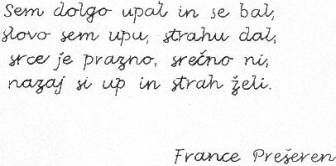 Sem dolgo upal in se bal,
slovo sem upu, strahu dal,
srce je prazno, srečno ni,
nazaj si up in strah želi.
France Prešeren